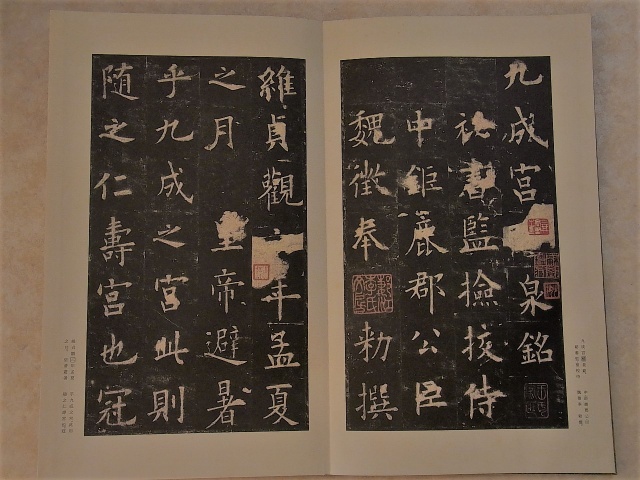 九成宮泉銘
秘書監撿挍侍
中鉅鹿郡公臣
魏徵奉勅撰
維貞觀六年孟夏
之月皇帝避暑
乎九成之宮此則
隨之仁壽宮也冠